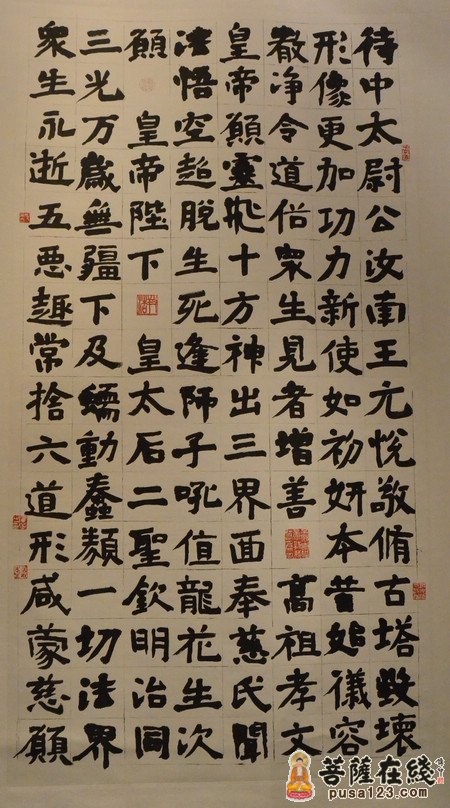 待中太尉公汝南王元悅敬脩古塔毀壞
形像更加功力新使如初妍本昔始儀容
教净令道俗眾生見者增善 高祖孝文
皇帝願靈飛十方神出三界面奉慈氏聞
法悟空超脫生死逢師子吼值龍花生次
願 皇帝陛下 皇太后二聖欽明治同
三光万歲無疆下及蠕動蠢類一切法界
眾生永逝五惡趣常捨六道形咸蒙慈願
菩薩在綫
pusa123.com